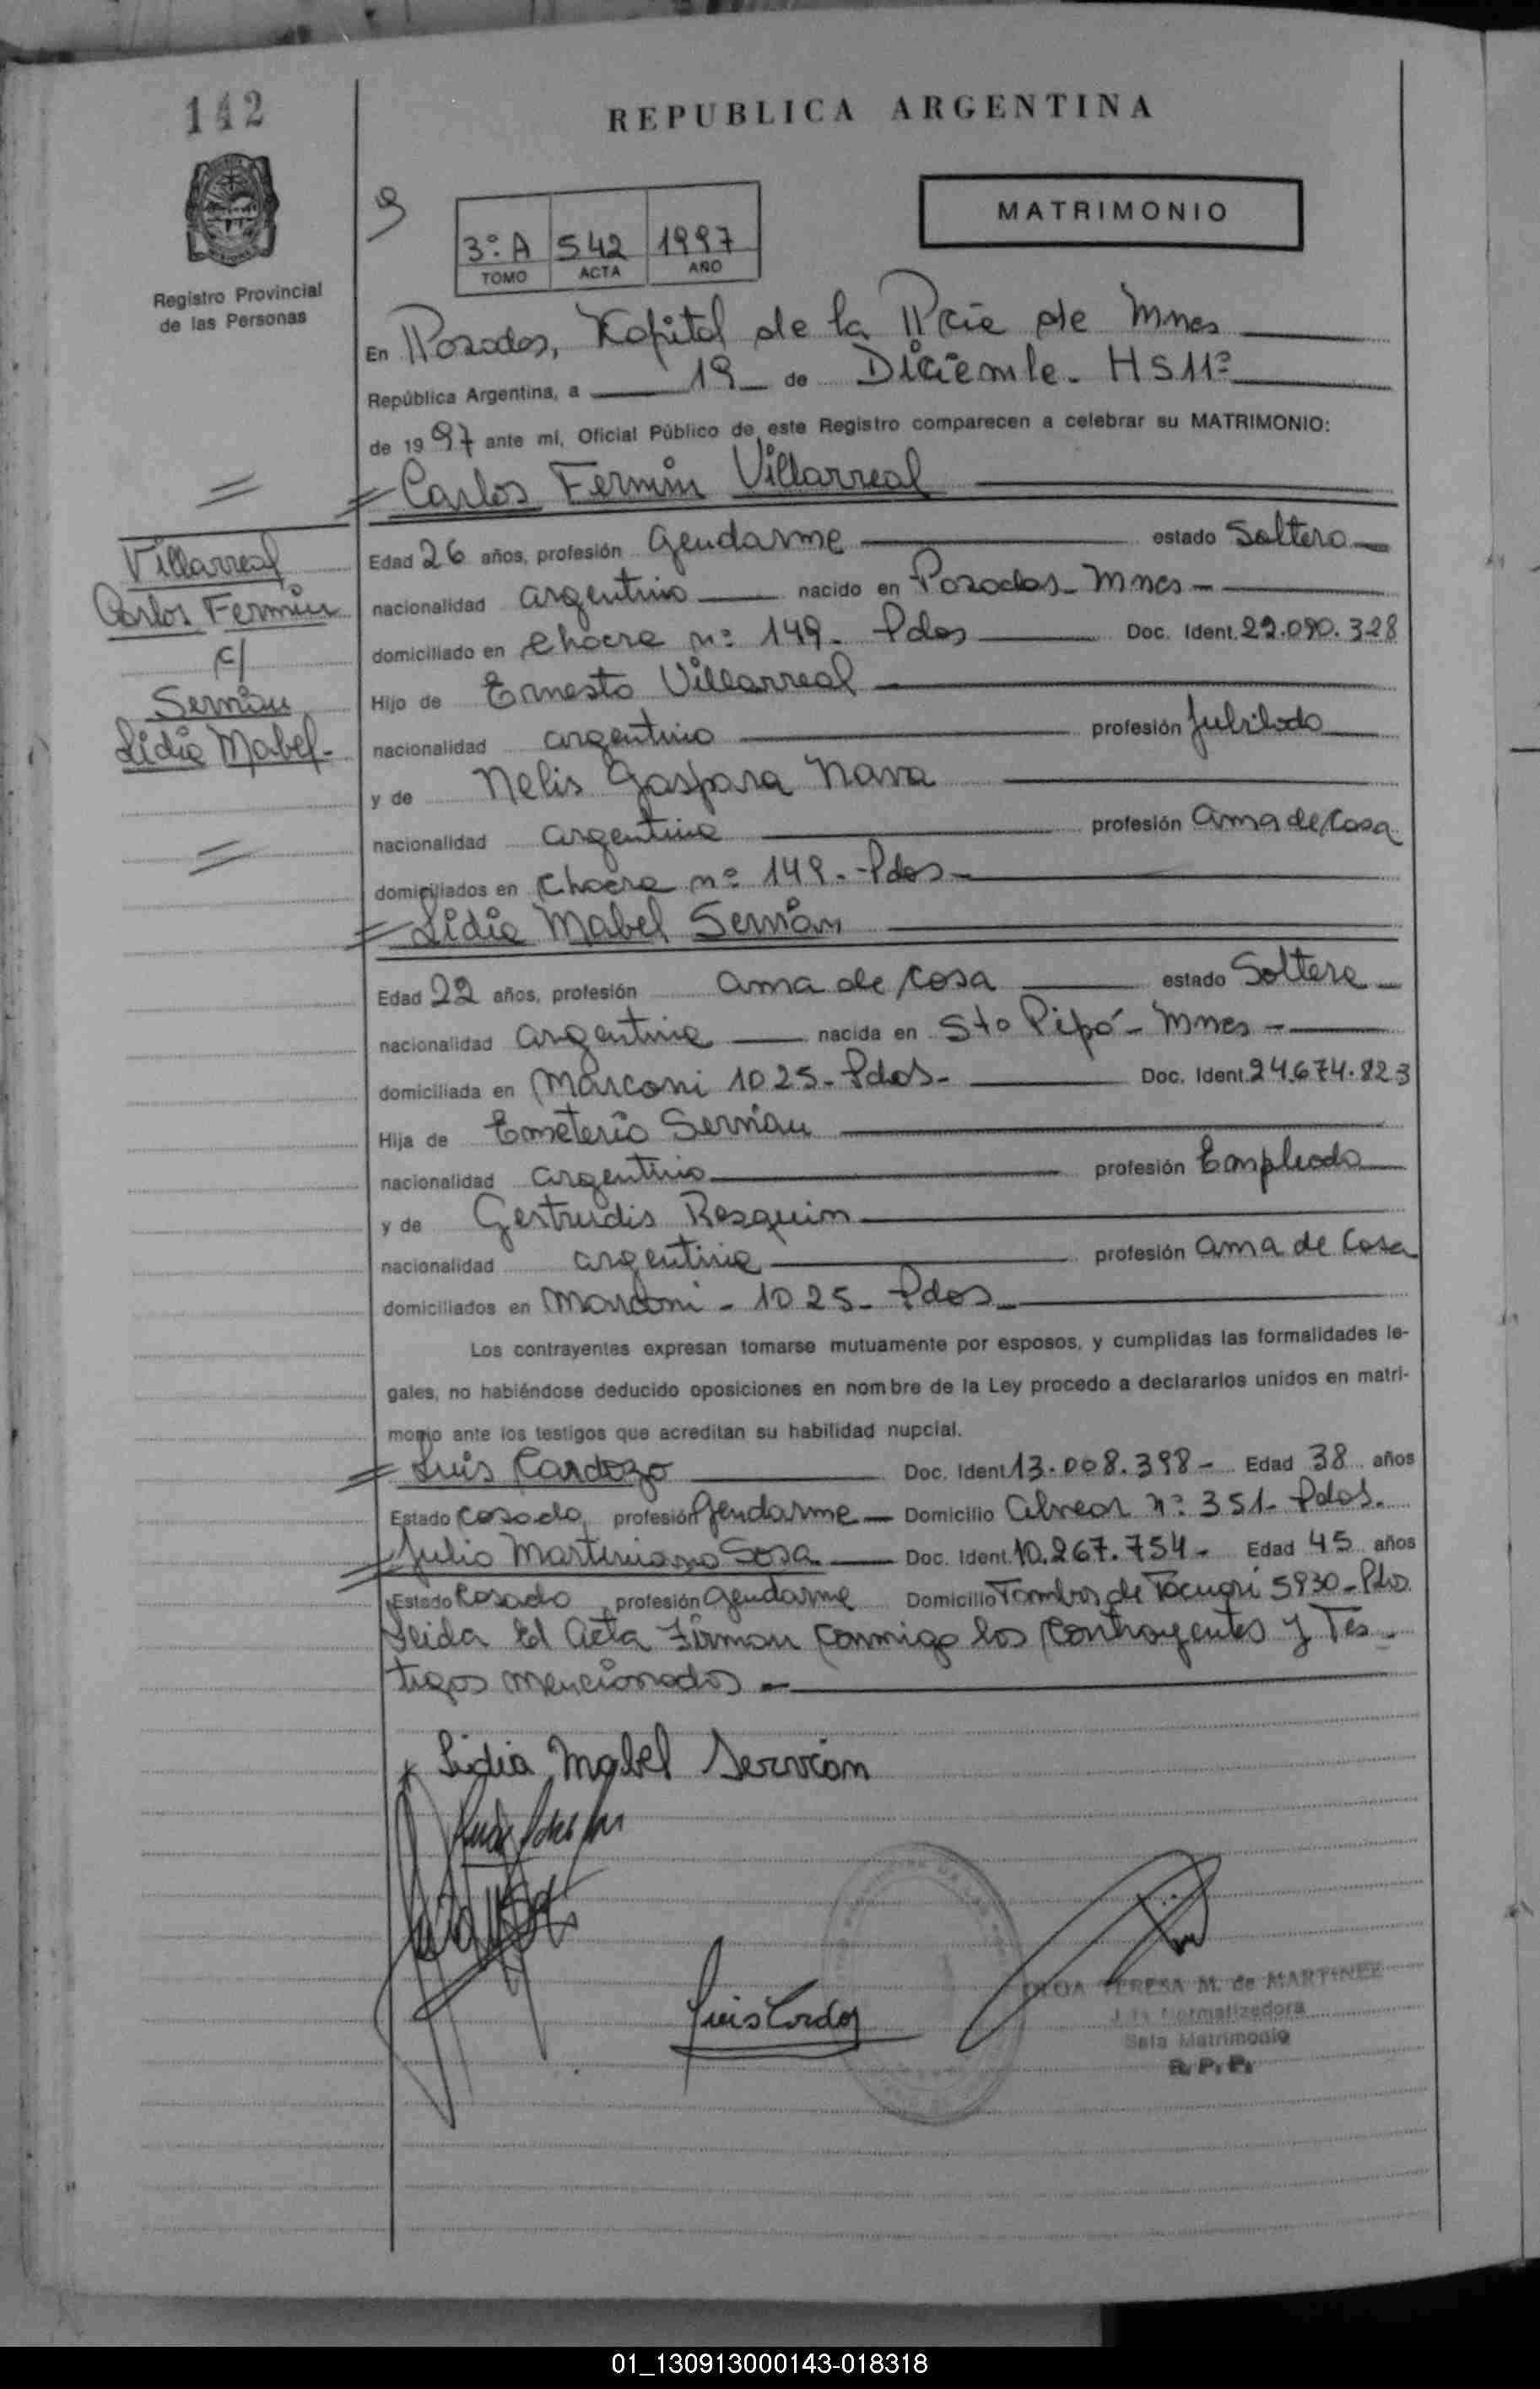 142
REPUBLICA ARGENTINA
MATRIMONIO
3º A 542 1997
TOMO ACTA AÑO
Registro Provincial
de las Personas
En Posadas, Kapital de la Pcia de Mnes
República Argentina, a 19 de Diciembre. HS 11º
de 1997 ante mí, Oficial Público de este Registro comparecen a celebrar su MATRIMONIO:
Carlos Fermin Villarreal
Villarreal
Carlos Fermin
c/
Servian
Lidia Mabel-
Edad 26 años, profesión Gendarme estado Soltero
nacionalidad argentino nacido en Posadas - Mnes -
domiciliado en Chacra nº 149. Pdas Doc. Ident. 22.090.328
Hijo de Ernesto Villarreal
nacionalidad argentino profesión Jubilado
y de Nelis Gaspara Nava
nacionalidad argentina profesión ama de casa
domiciliados en Chacra nº 149.- Pdas -
Lidia Mabel Servian
Edad 22 años, profesión ama de casa estado Soltera
nacionalidad argentina nacida en Sto Pipó - Mnes -
domiciliada en Marconi 1025 - Pdas - Doc. Ident. 24.674.823
Hija de Emeterio Servian
nacionalidad argentino profesión Empleado
y de Gertrudis Resquin
nacionalidad argentina profesión ama de casa
domiciliados en Marconi - 1025 - Pdas -
Los contrayentes expresan tomarse mutuamente por esposos, y cumplidas las formalidades le-
gales, no habiéndose deducido oposiciones en nombre de la Ley procedo a declararlos unidos en matri-
monio ante los testigos que acreditan su habilidad nupcial.
Luis Cardozo Doc. Ident. 13.008.398 - Edad 38 años
Estado casado profesión Gendarme Domicilio Alvear nº 351 - Pdas.
Julio Martiniano Sosa Doc. Ident. 10.267.754 - Edad 45 años
Estado Casado profesión Gendarme Domicilio Tambor de Tacuarí 5930 - Pdas
Leida el acta Firman conmigo los contrayentes y Tes-
tigos mencionados -
Lidia Mabel Servian
Luis Cardoz
OLGA TERESA M. de MARTINEZ
Normalizadora
Sala Matrimonio
R. P. P.
01_130913000143-018318